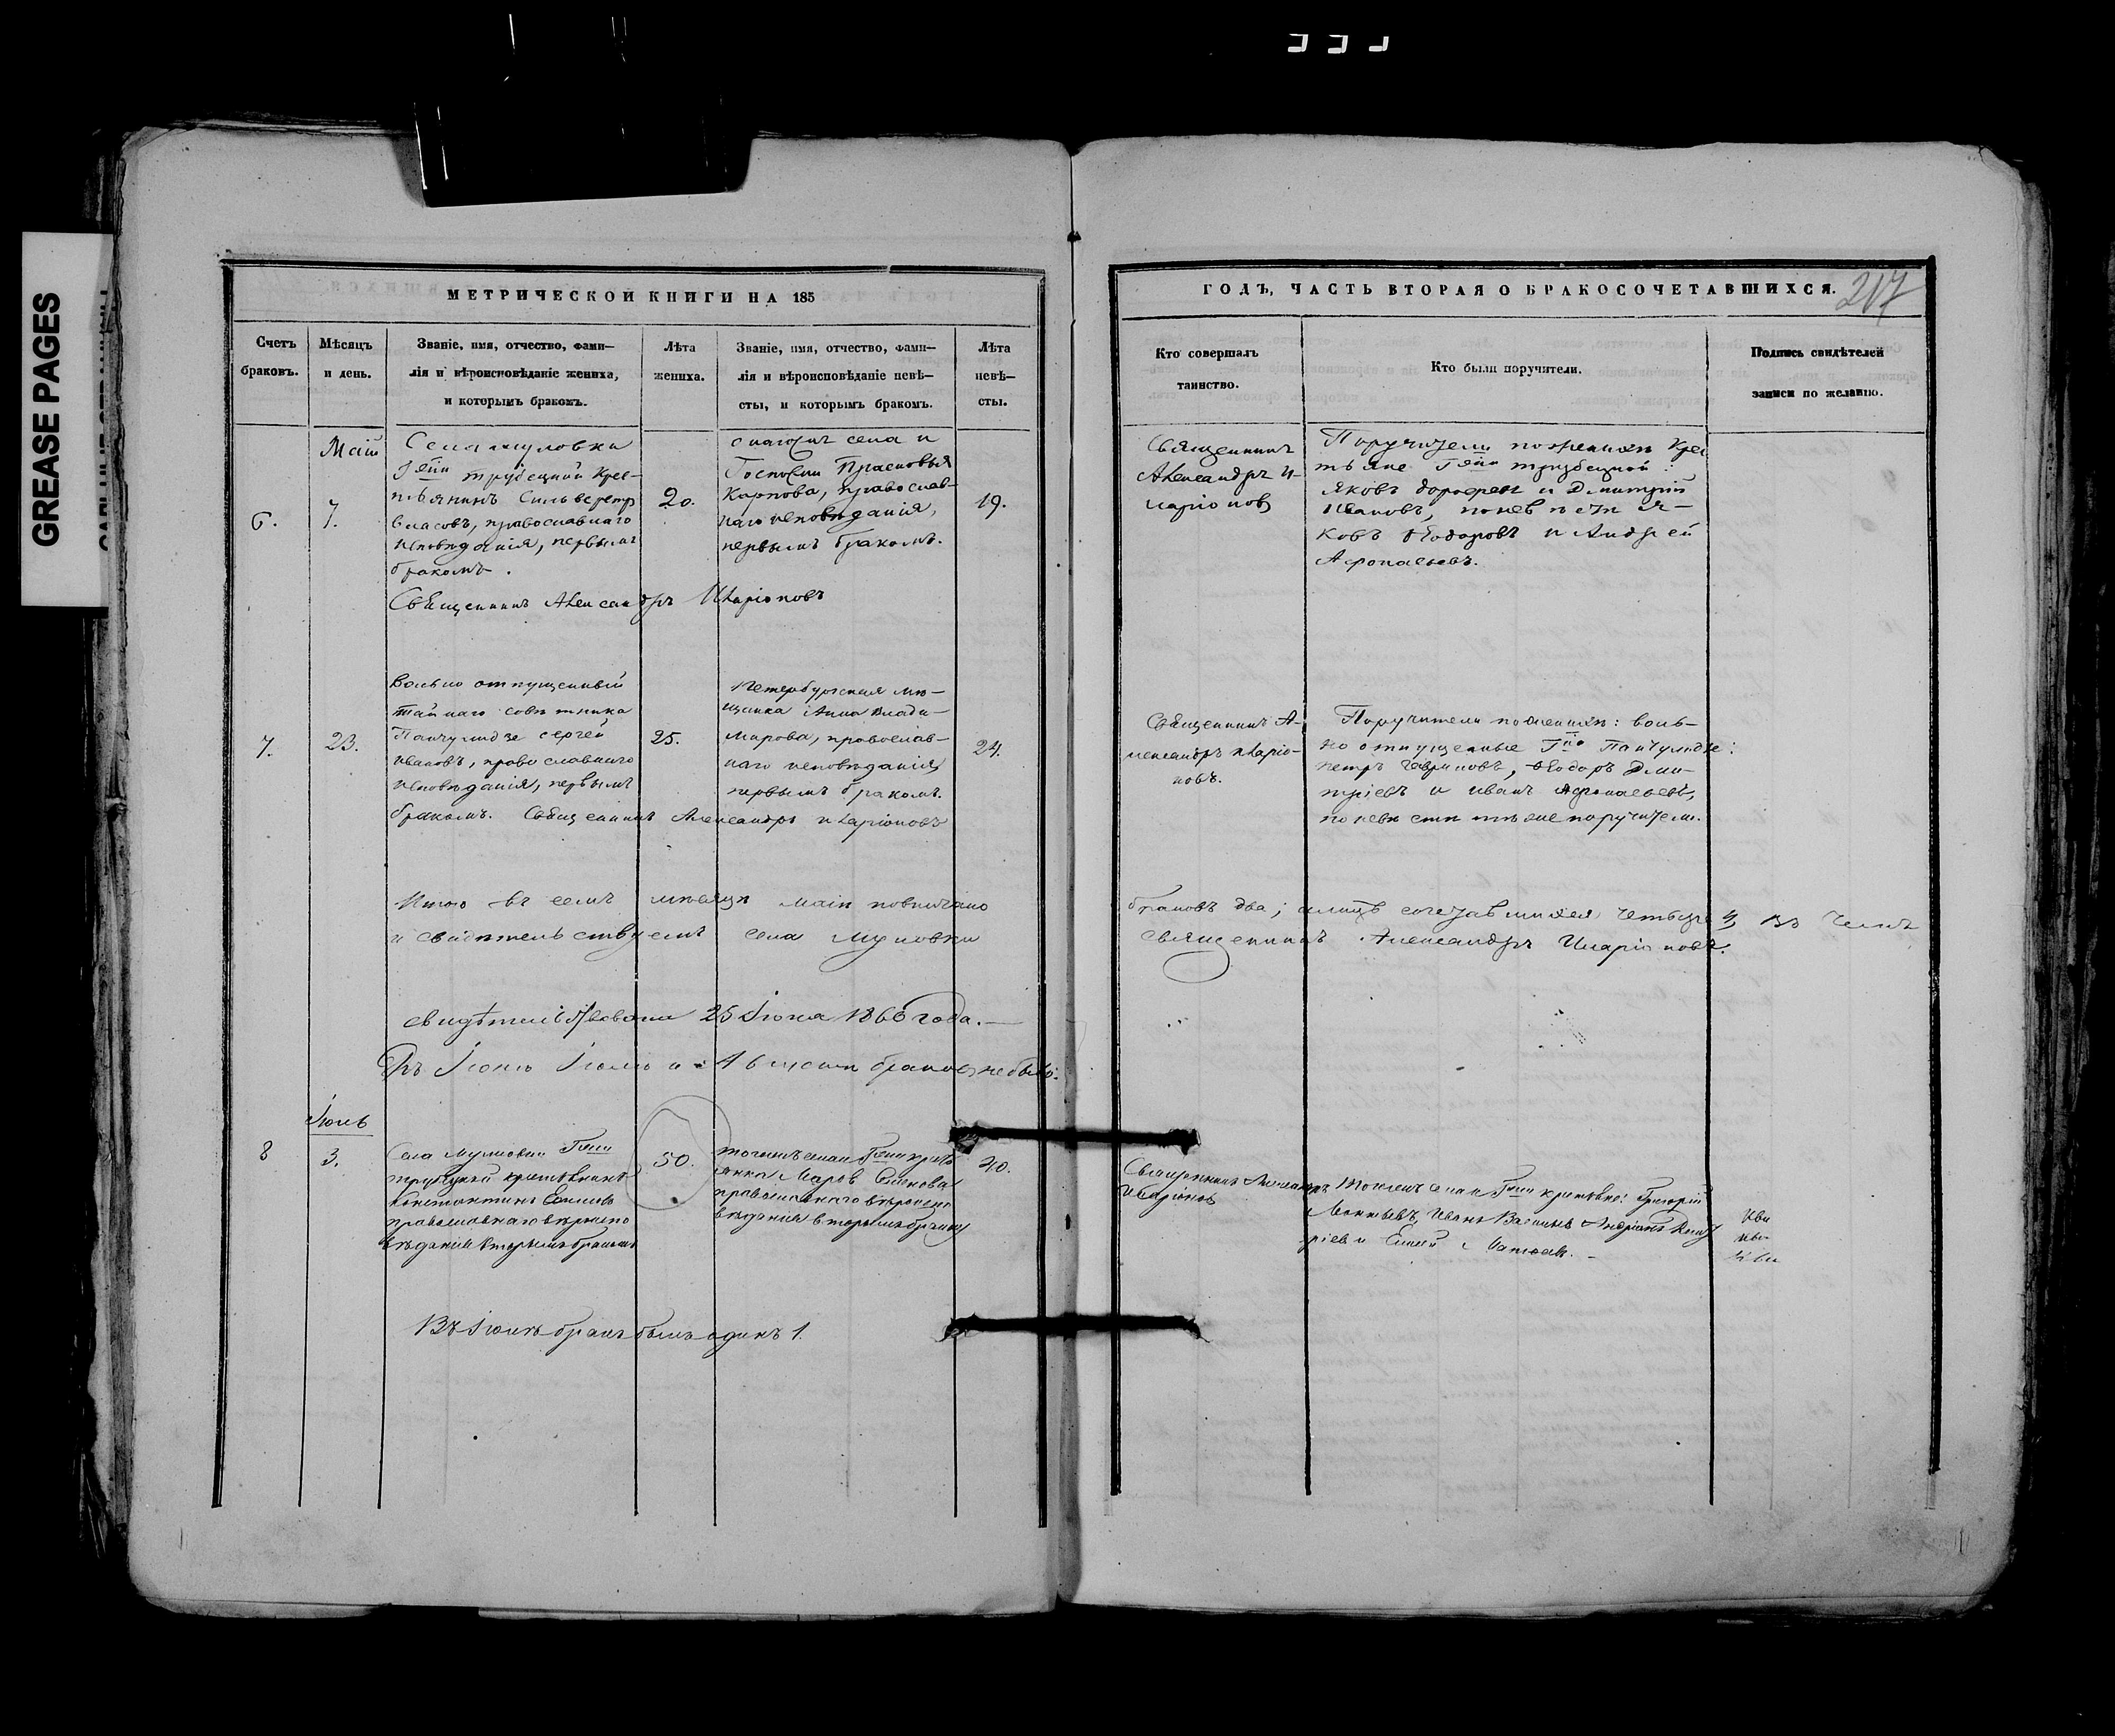 GREASE PAGES
МЕТРИЧЕСКОЙ КНИГИ НА 185
Счетъ браковъ.
Мѣсяцъ и день.
Званіе, имя, отчество, фами-
лія и вѣроисповѣданіе жениха,
и которымъ бракомъ.
Лѣта жениха.
Званіе, имя, отчество, фами-
лія и вѣроисповѣданіе невѣ-
сты, и которымъ бракомъ.
Лѣта невѣ-
сты.
6.
Маій
7.
Села Муловки
Трубецкой Крес-
тьянинъ Сильвестръ
Власовъ, православнаго
исповѣданія, первымъ
бракомъ.
20.
села и
Госпожи Прасковья
Карпова, православ-
наго исповѣданія,
первымъ бракомъ.
19.
Священникъ Александръ Иларіоновъ
7.
23.
Вольно отпущенный
тайнаго совѣтника
Панчулидзе Сергей
Ивановъ, православнаго
исповѣданія, первымъ
бракомъ. Священникъ Александръ Иларіоновъ
25.
Петербургская мѣ-
щанка Анна Влади-
мирова, православ-
наго исповѣданія,
первымъ бракомъ.
24.
Итого въ семъ мѣсяцѣ Маіѣ повѣнчано
и свидѣтельствуемъ села Муловки
свидѣтельствовали 25 Іюня 1860 года.
Въ Іюнѣ браковъ не было.
Іюль
8
3.
Села Муловки
Трубецкой крестьянинъ
Константинъ
православнаго вѣроиспо
вѣданія вторымъ бракомъ
50.
тогожъ села
Марѳа
православнаго вѣроиспо
вѣданія вторымъ бракомъ
40.
Въ Іюлѣ бракъ былъ одинъ 1.
ГОДЪ, ЧАСТЬ ВТОРАЯ О БРАКОСОЧЕТАВШИХСЯ.
217
Кто совершалъ
таинство.
Кто были поручители.
Подпись свидѣтелей
записи по желанію.
Священникъ
Александръ И-
ларіоновъ
Поручители по женихѣ Крес
тьяне Трубецкой:
Яковъ Дорофеевъ и Дмитрій
Ивановъ, по невѣстѣ Я-
ковъ Ѳедоровъ и Андрей
Афонасьевъ.
Священникъ А-
лександръ Иларіо-
новъ.
Поручители по женихѣ: воль-
но отпущенные Панчулидзе:
Петръ Гавриловъ, Ѳедоръ Дми-
тріевъ и Иванъ Афонасьевъ,
по невѣстѣ тѣже поручители.
браковъ два; а лицъ сочетавшихся четыре 4, въ чемъ
священникъ Александръ Иларіоновъ.
Священникъ Александръ
Иларіоновъ
тогожъ села крестьяне: Григорій
Леонтьевъ, Иванъ Андріанъ Дмит
ріевъ и